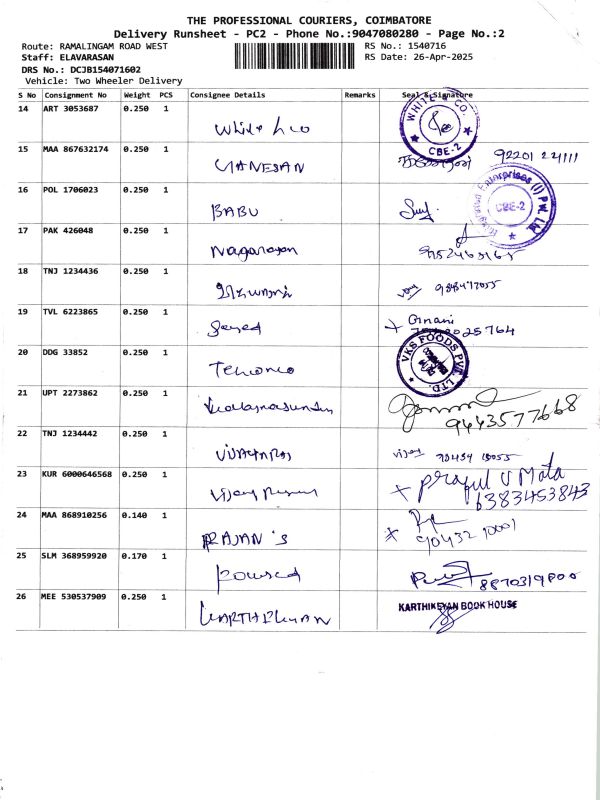 THE PROFESSIONAL COURIERS, COIMBATORE
Delivery Runsheet - PC2 - Phone No.:9047080280 - Page No.:2
Route: RAMALINGAM ROAD WEST
RS No.: 1540716
Staff: ELAVARASAN
RS Date: 26-Apr-2025
DRS No.: DCJB154071602
Vehicle: Two Wheeler Delivery
S No Consignment No Weight PCS Consignee Details Remarks Seal & Signature
14 ART 3053687 0.250 1 White & co WHITE & CO. CBE-2
15 MAA 867632174 0.250 1 GANESAN 92201 22111
16 POL 1706023 0.250 1 BABU Enterprises (I) Pvt. Ltd. CBE-2
17 PAK 426048 0.250 1 Nagarajan
18 TNJ 1234436 0.250 1
19 TVL 6223865 0.250 1 Gnani
20 DDG 33852 0.250 1 VKS FOODS PVT. LTD.
21 UPT 2273862 0.250 1 9443577668
22 TNJ 1234442 0.250 1 VIJAYARAJ vijay
23 KUR 6000646568 0.250 1 x Praful V Mata 6383453843
24 MAA 868910256 0.140 1 RAJAN 'S x 90432 10001
25 SLM 368959920 0.170 1
26 MEE 530537909 0.250 1 KARTHIKEYAN KARTHIKEYAN BOOK HOUSE